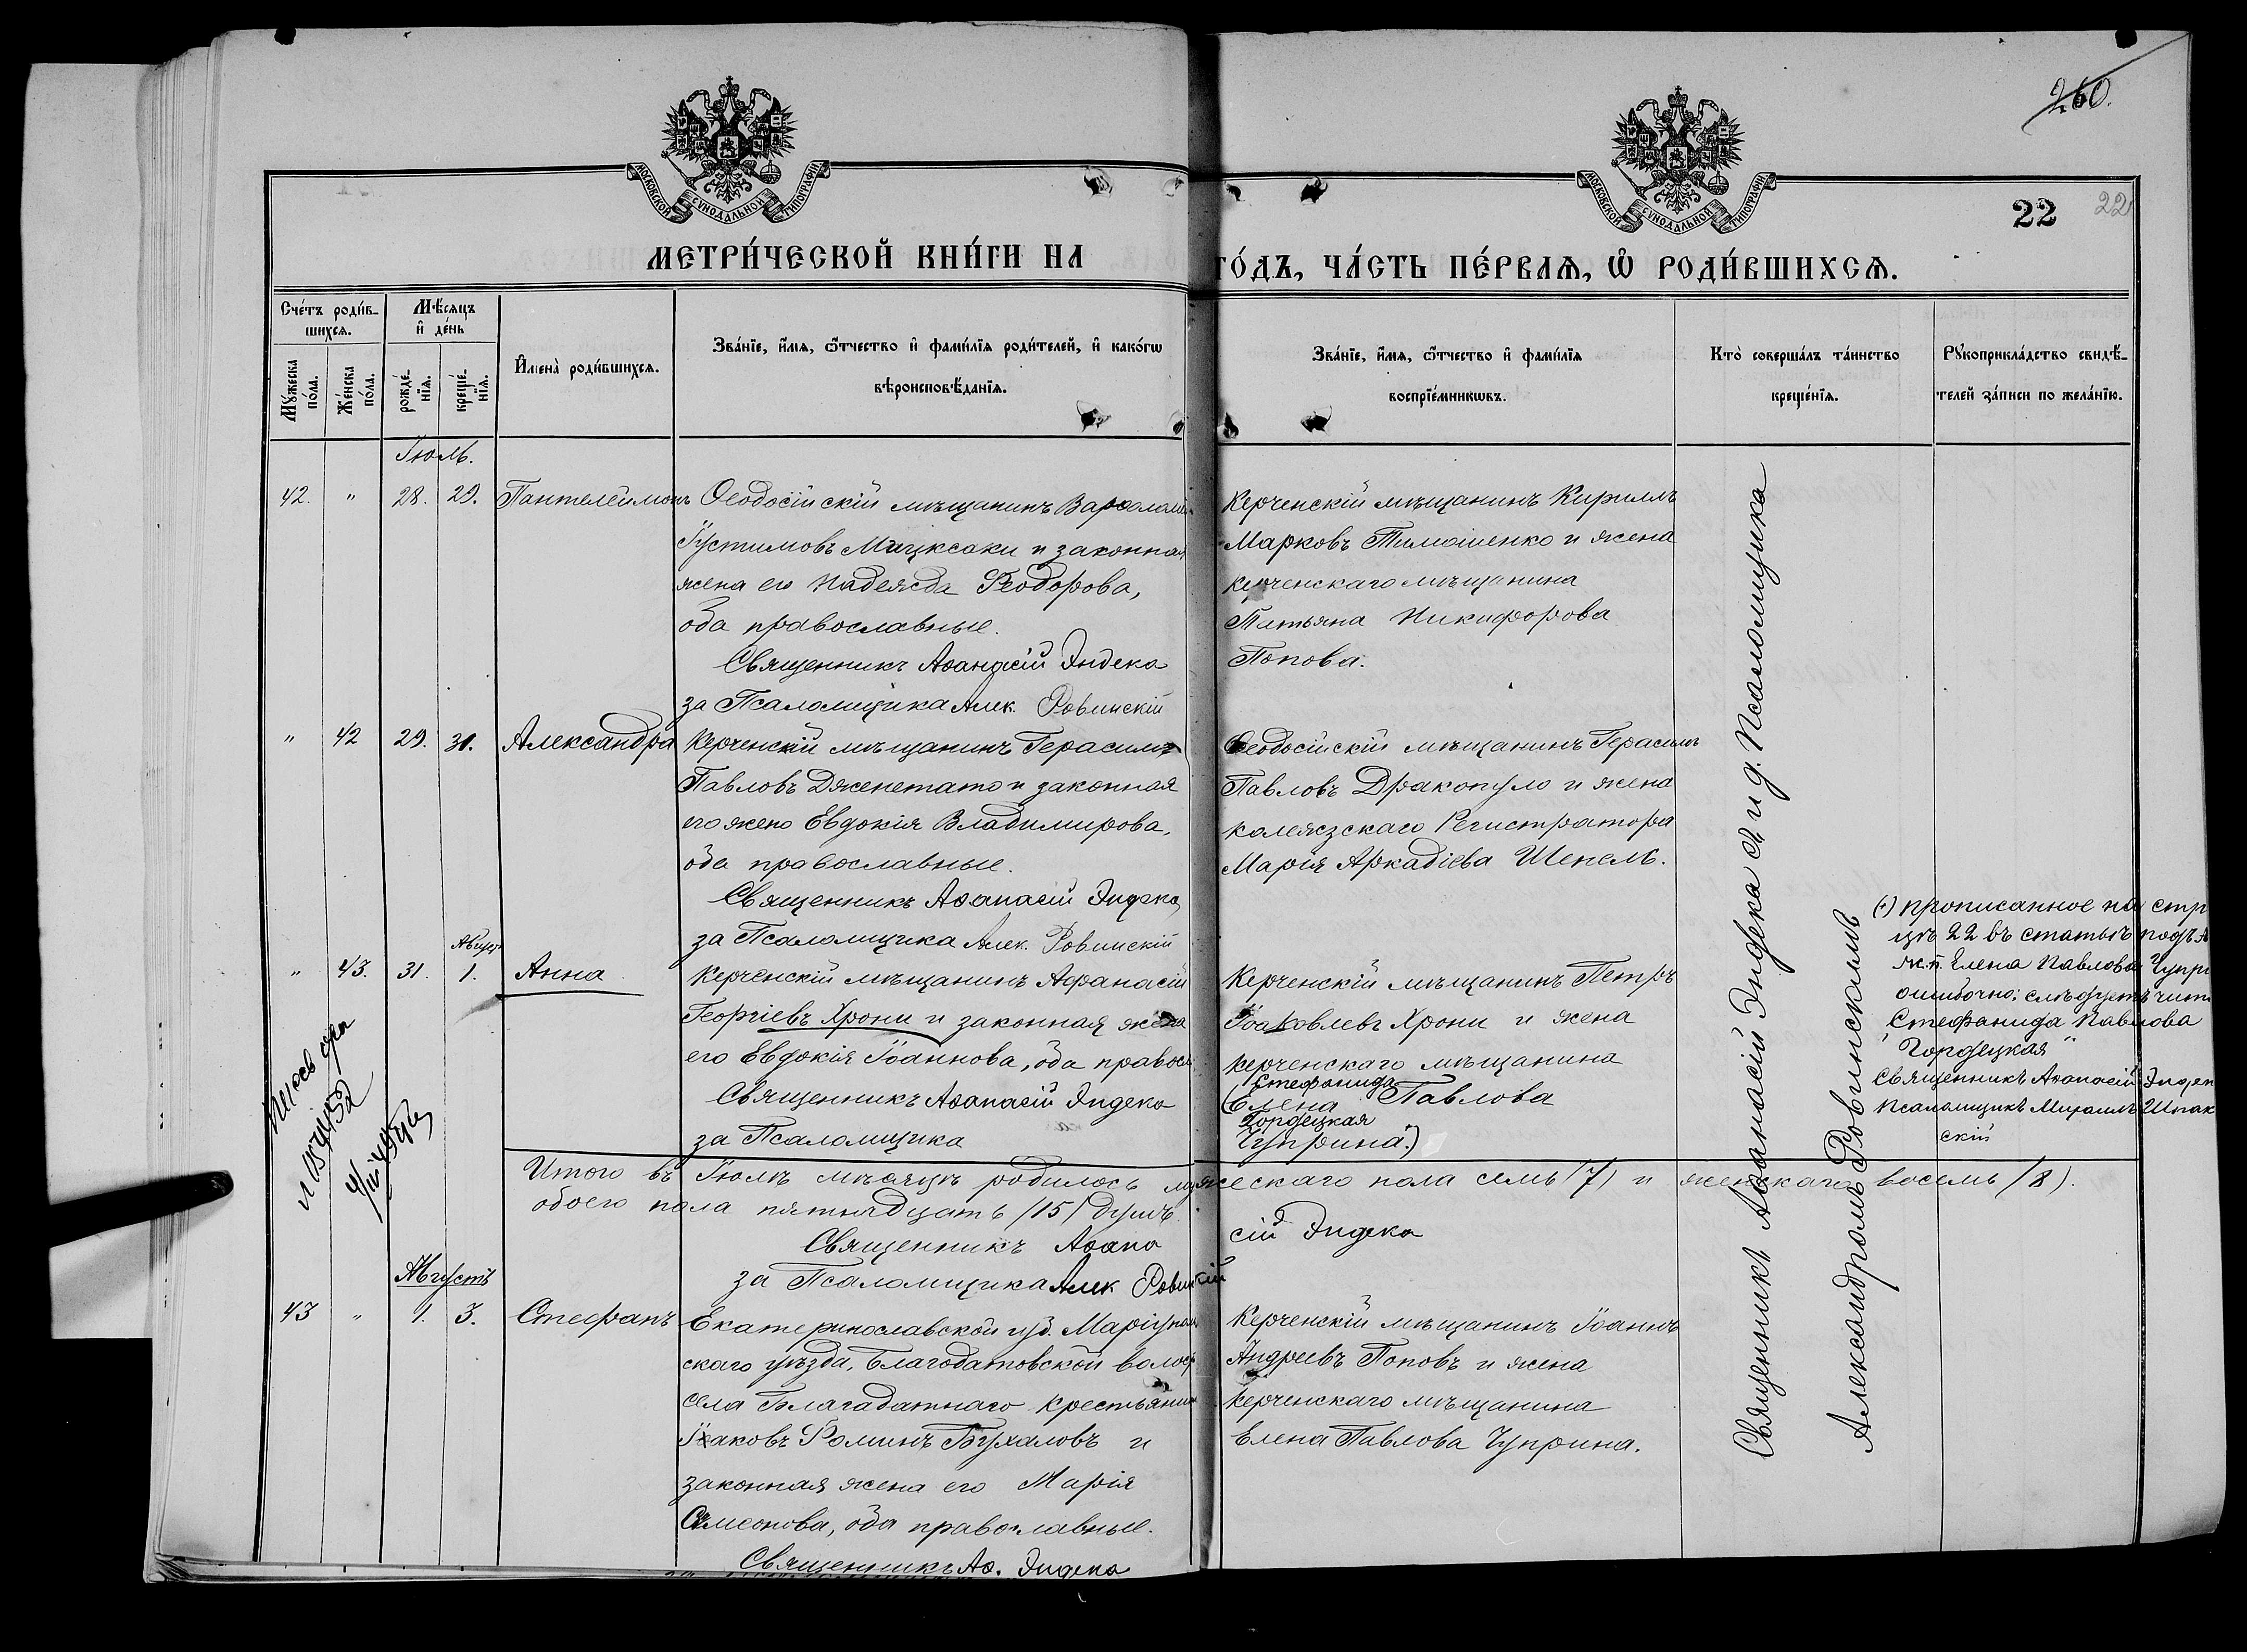 260.
МОСКОВСКОЙ СѴНОДАЛЬНОЙ ТИПОГРАФІИ
МОСКОВСКОЙ СѴНОДАЛЬНОЙ ТИПОГРАФІИ
22
22
МЕТРИ́ЧЕСКОЙ КНИ́ГИ НА
ГО́ДЪ, ЧА́СТЬ ПЕ́РВАѦ, Ѽ РОДИ́ВШИХСѦ.
Сче́тъ роди́в-
шихсѧ.
Мꙋ́жеска по́ла.
Же́нска по́ла.
Мѣ́сѧцъ
и҆ де́нь
рожде́-
нїѧ.
креще́-
нїѧ.
И҆мена̀ роди́вшихсѧ.
Зва́нїе, и҆́мѧ, ѻ҆́тчество и҆ фами́лїѧ роди́телей, и҆ како́гѡ
вѣроисповѣ́данїѧ.
Зва́нїе, и҆́мѧ, ѻ҆́тчество и҆ фами́лїѧ
воспрїе́мникѡвъ.
Кто̀ соверша́лъ та́инство
креще́нїѧ.
Рꙋкоприкла́дство свидѣ́-
телей за́писи по жела́нїю.
Іюль.
42. " 28. 29. Пантелеймонъ
Ѳеодосійскій мѣщанинъ Варѳолом
Іустимовъ и законная
жена его Надежда Ѳеодорова,
оба православные.
Священникъ Аѳанасій Эндека
за Псаломщика Алек. Ровинскій
Керченскій мѣщанинъ Кириллъ
Марковъ Тимошенко и жена
керченскаго мѣщанина
Татьяна Никифорова
Попова.
" 42 29. 31. Александра
Керченскій мѣщанинъ Герасимъ
Павловъ Дженетато и законная
его жена Евдокія Владимирова,
оба православные.
Священникъ Аѳанасій Эндека
за Псаломщика Алек. Ровинскій
Ѳеодосійскій мѣщанинъ Герасимъ
Павловъ Дракопуло и жена
колежзскаго Регистратора
Марія Аркадіева Шепель.
Август
" 43. 31. 1. Анна
Керченскій мѣщанинъ Афанасій
Георгіевъ Хрони и законная жена
его Евдокія Іоаннова, оба правосл
Священникъ Аѳанасій Эндека
за Псаломщика
Керченскій мѣщанинъ Петръ
Іоаковлевъ Хрони и жена
керченскаго мѣщанина
Стефанида
Елена Павлова
Гордецкая
Чуприна.)
(+) прописанное на стр
цѣ 22 въ статьѣ подъ №
ж.п. Елена Павлова Чупри
ошибочно: слѣдуетъ чит
"Стефанида Павлова
Гордецкая"
Священникъ Аѳанасій Эндек
Псаломщикъ Михаилъ Шпак
скій
Итого въ Іюлѣ мѣсяцѣ родилось мужескаго пола семь (7) и женскаго восемь (8).
обоего пола пятнадцать (15) душъ.
Священникъ Аѳанасій Эндека
за Псаломщика Алек Ровинскій
Августъ
43 " 1. 3. Стефанъ
Екатеринославской губ. Маріупол
скаго уѣзда, Благодатовской волос
села Благадатнаго крестьянин
Іаковъ Ѳоминъ Бухаловъ и
законная жена его Марія
Симеонова, оба православные.
Священникъ Аѳ. Эндека
Керченскій мѣщанинъ Іоаннъ
Андреевъ Поповъ и жена
керченскаго мѣщанина
Елена Павлова Чуприна.
Священникъ Аѳанасій Эндека съ и д. Псаломщика
Александромъ Ровинскимъ